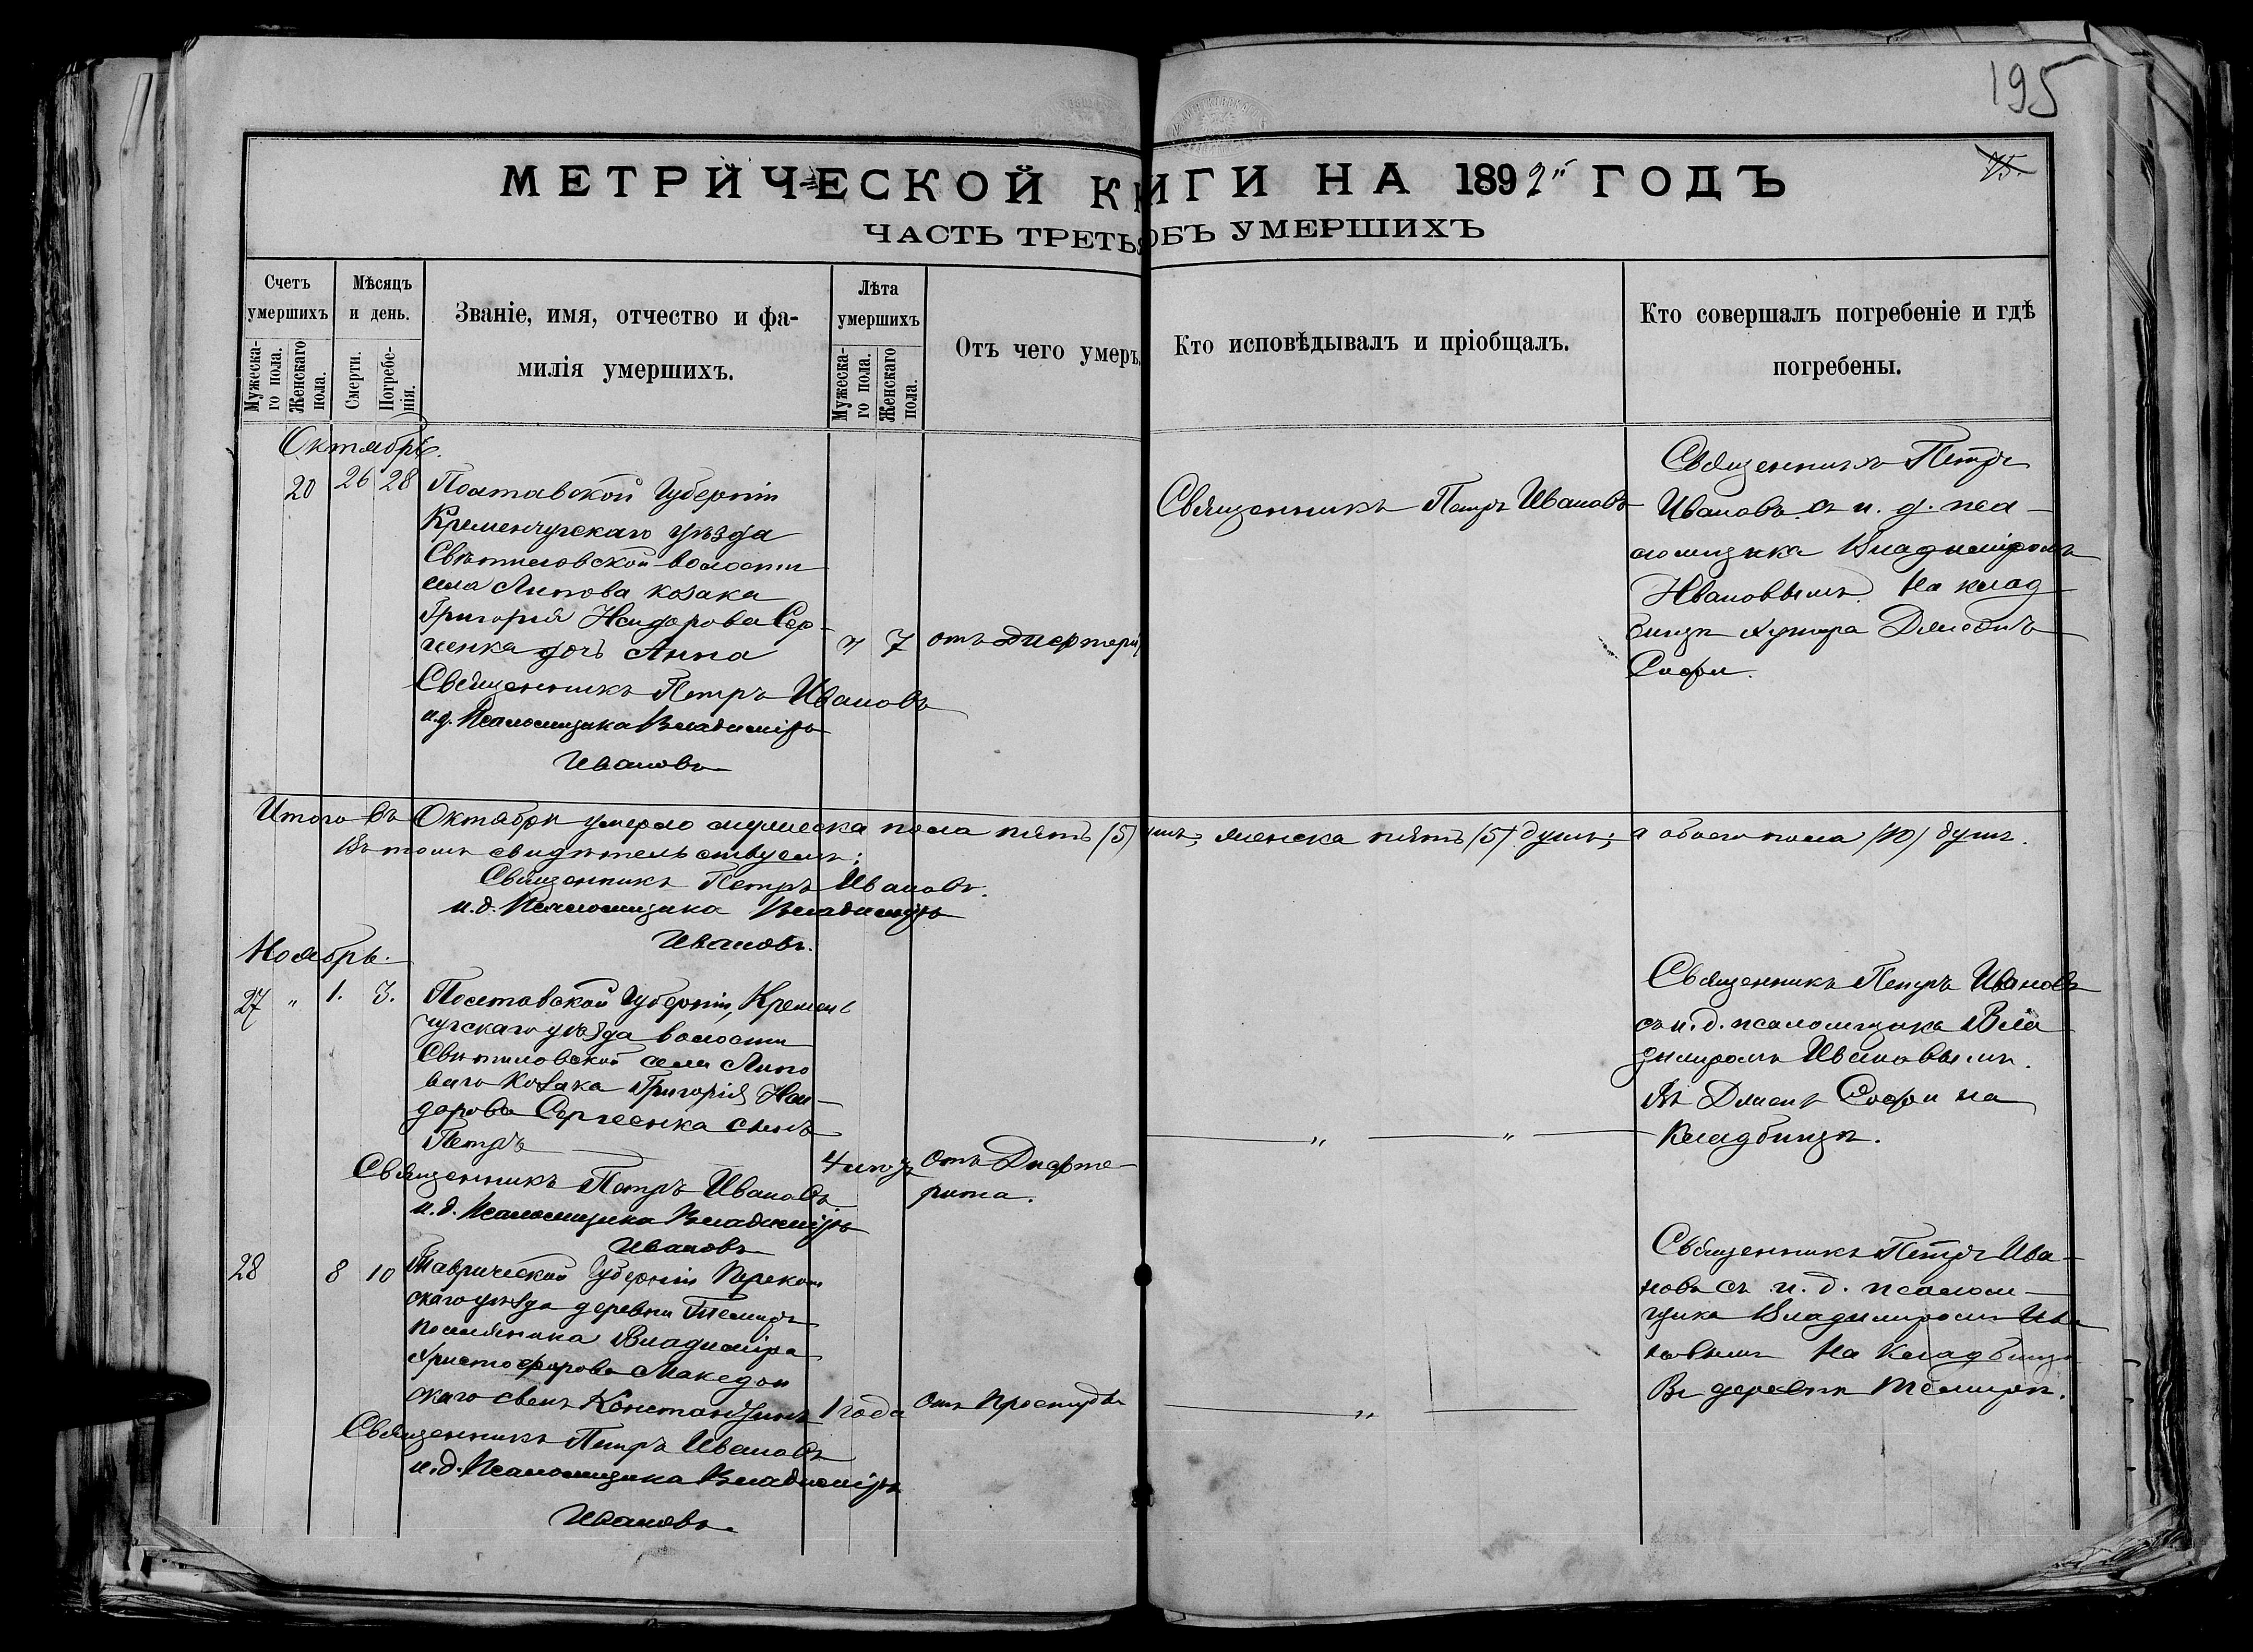 195
МЕТРИЧЕСКОЙ КНИГИ НА 1892й ГОДЪ
ЧАСТЬ ТРЕТЬЯ ОБЪ УМЕРШИХЪ
Счетъ умершихъ
Мужескаго пола.
Женскаго пола.
Мѣсяцъ и день.
Смерти.
Погребенія.
Званіе, имя, отчество и фамилія умершихъ.
Лѣта умершихъ
Мужескаго пола.
Женскаго пола.
Отъ чего умеръ.
Кто исповѣдывалъ и пріобщалъ.
Кто совершалъ погребеніе и гдѣ погребены.
Октябрь.
20 26 28
Полтавской Губерніи
Кременчугскаго уѣзда
волости
села Липова козака
Григорія
ченка дочь Анна
7 отъ
Священникъ Петръ Ивановъ
и.д. Псаломщика Владиміръ
Ивановъ
Священникъ Петръ Ивановъ
Священникъ Петръ
Ивановъ съ и. д. пса-
ломщика Владиміромъ
Ивановымъ. На клад
бищѣ хутора
Софи.
Итого въ Октябрѣ умерло мужеска пола пять (5) душъ; женска пять (5) душъ; а обоего пола (10) душъ.
Въ томъ свидѣтельствуемъ:
Священникъ Петръ Ивановъ.
и.д. Псаломщика Владиміръ
Ивановъ.
Ноябрь.
27 " 1. 3.
Полтавской Губерніи, Кремен
чугскаго уѣзда волости
села Липо
ваго Козака Григорія
дорова Сергеенка сынъ
Петръ
4 Отъ Дифте-
рита.
Священникъ Петръ Ивановъ
и.д. Псаломщика Владиміръ
Ивановъ
" "
Священникъ Петръ Ивановъ
съ и.д. псаломщика Вла
димиромъ Ивановымъ.
Софи на
Кладбищѣ.
28 8 10
Таврической Губерніи Перекоп
скаго уѣзда деревни Темиръ
поселянина Владиміра
Христофорова Македон
скаго сынъ Константинъ
1 года Отъ Простуды
Священникъ Петръ Ивановъ
и.д. Псаломщика Владиміръ
Ивановъ.
"
Священникъ Петръ Ива-
новъ съ и. д. псалом-
щика Владимиромъ Ива
новымъ На Кладбищѣ
Въ деревнѣ Темиръ.